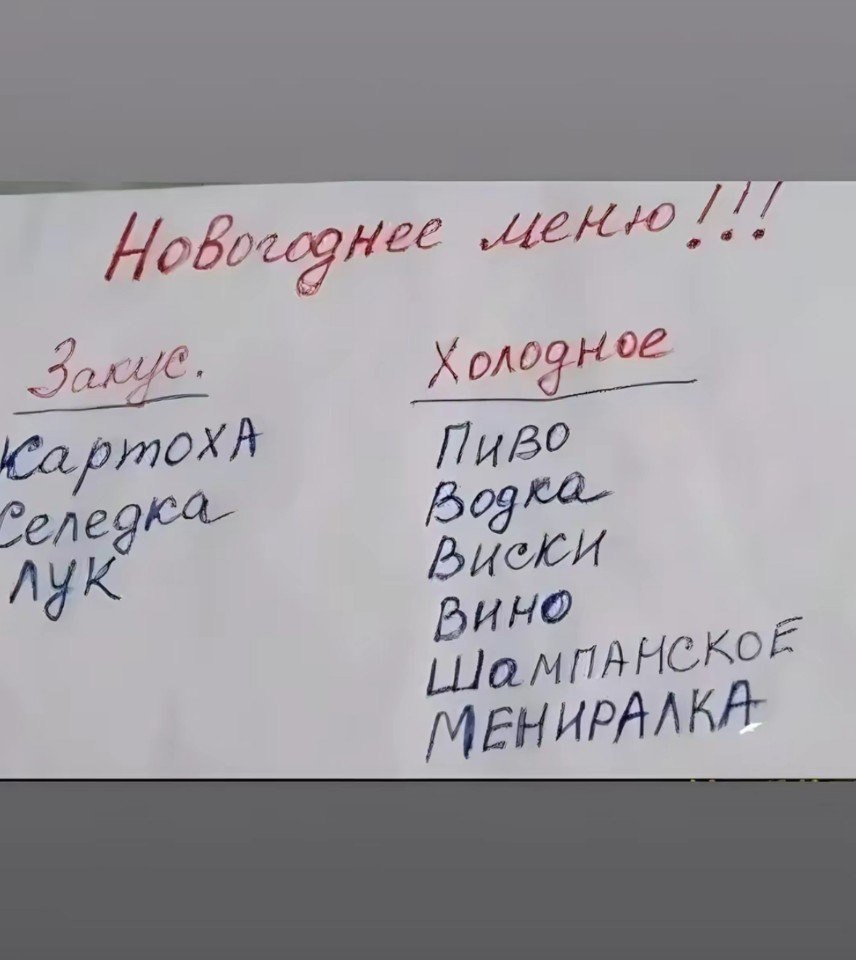 Новогоднее меню!!!
Закус.
КартоХА
Селедка
ЛУК
Холодное
Пиво
Водка
Виски
Вино
ШаМПАНСКОЕ
МЕНИРАЛКА